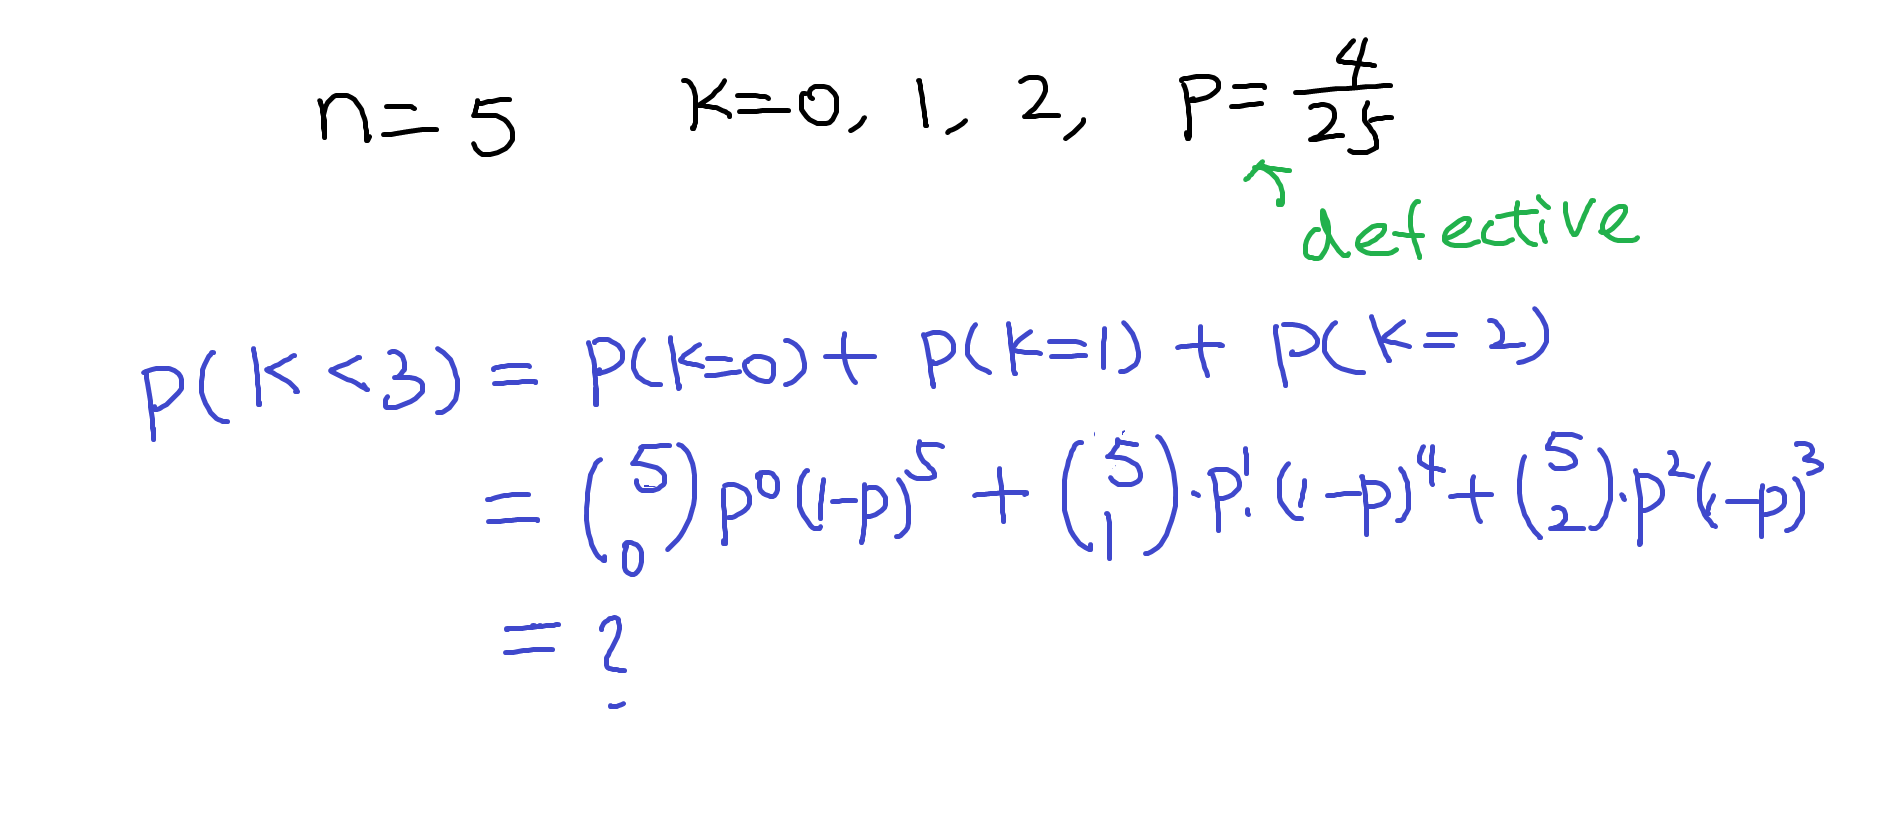 n = 5   k = 0, 1, 2,   p = 4/25
defective
P(k < 3) = P(k=0) + P(k=1) + P(k=2)
= (5 0) p⁰(1-p)⁵ + (5 1)·p¹·(1-p)⁴ + (5 2)·p²(1-p)³
= ?